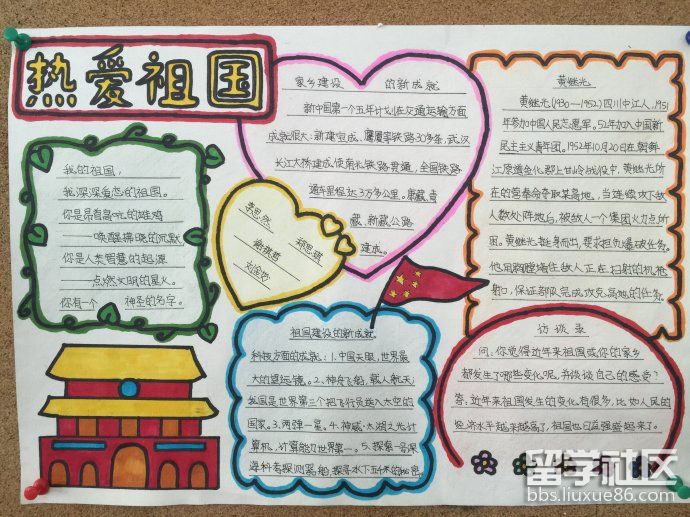 热爱祖国
家乡建设 的新成就
新中国第一个五年计划在交通运输方面
成就很大：新建宝成、鹰厦等铁路30多条，武汉
长江大桥建成，使南北铁路贯通，全国铁路
通车里程达3万多公里。康藏、青
藏、新藏公路
建成。
我的祖国，
我深深爱恋的祖国。
你是昂首高吭的雄鸡
唤醒拂晓的沉默
你是人类智慧的起源
点燃文明的星火。
你有一个 神圣的名字。
黄继光
黄继光(1930—1952)四川中江人，1951
年参加中国人民志愿军。52年加入中国新
民主主义青年团。1952年10月20日在朝鲜
江原道金化郡上甘岭战役中，黄继光所
在的营奉命夺取某高地，当连续攻下敌
人数处阵地后，被敌人一个集团火力点所
困。黄继光挺身而出，要求担负爆破任务。
他用胸膛堵住敌人正在扫射的机枪
射口，保证部队完成攻克高地的任务。
祖国建设的新成就
科技方面的成就：1.中国天眼，世界最
大的望远镜。2.神舟飞船，载人航天；
我国是世界第三个把飞行员送入太空的
国家。3.两弹一星。4.神威·太湖之光计
算机，计算能力世界第一。5.探索一号深
海科考探测器船，探寻水下五千米的秘密。
访谈录
问：你觉得近年来祖国或你的家乡
都发生了哪些变化呢，并谈谈自己的感受？
答：近年来祖国发生的变化有很多，比如人民的
经济水平越来越高了，祖国也日益强盛起来了。
留学社区
bbs.liuxue86.com